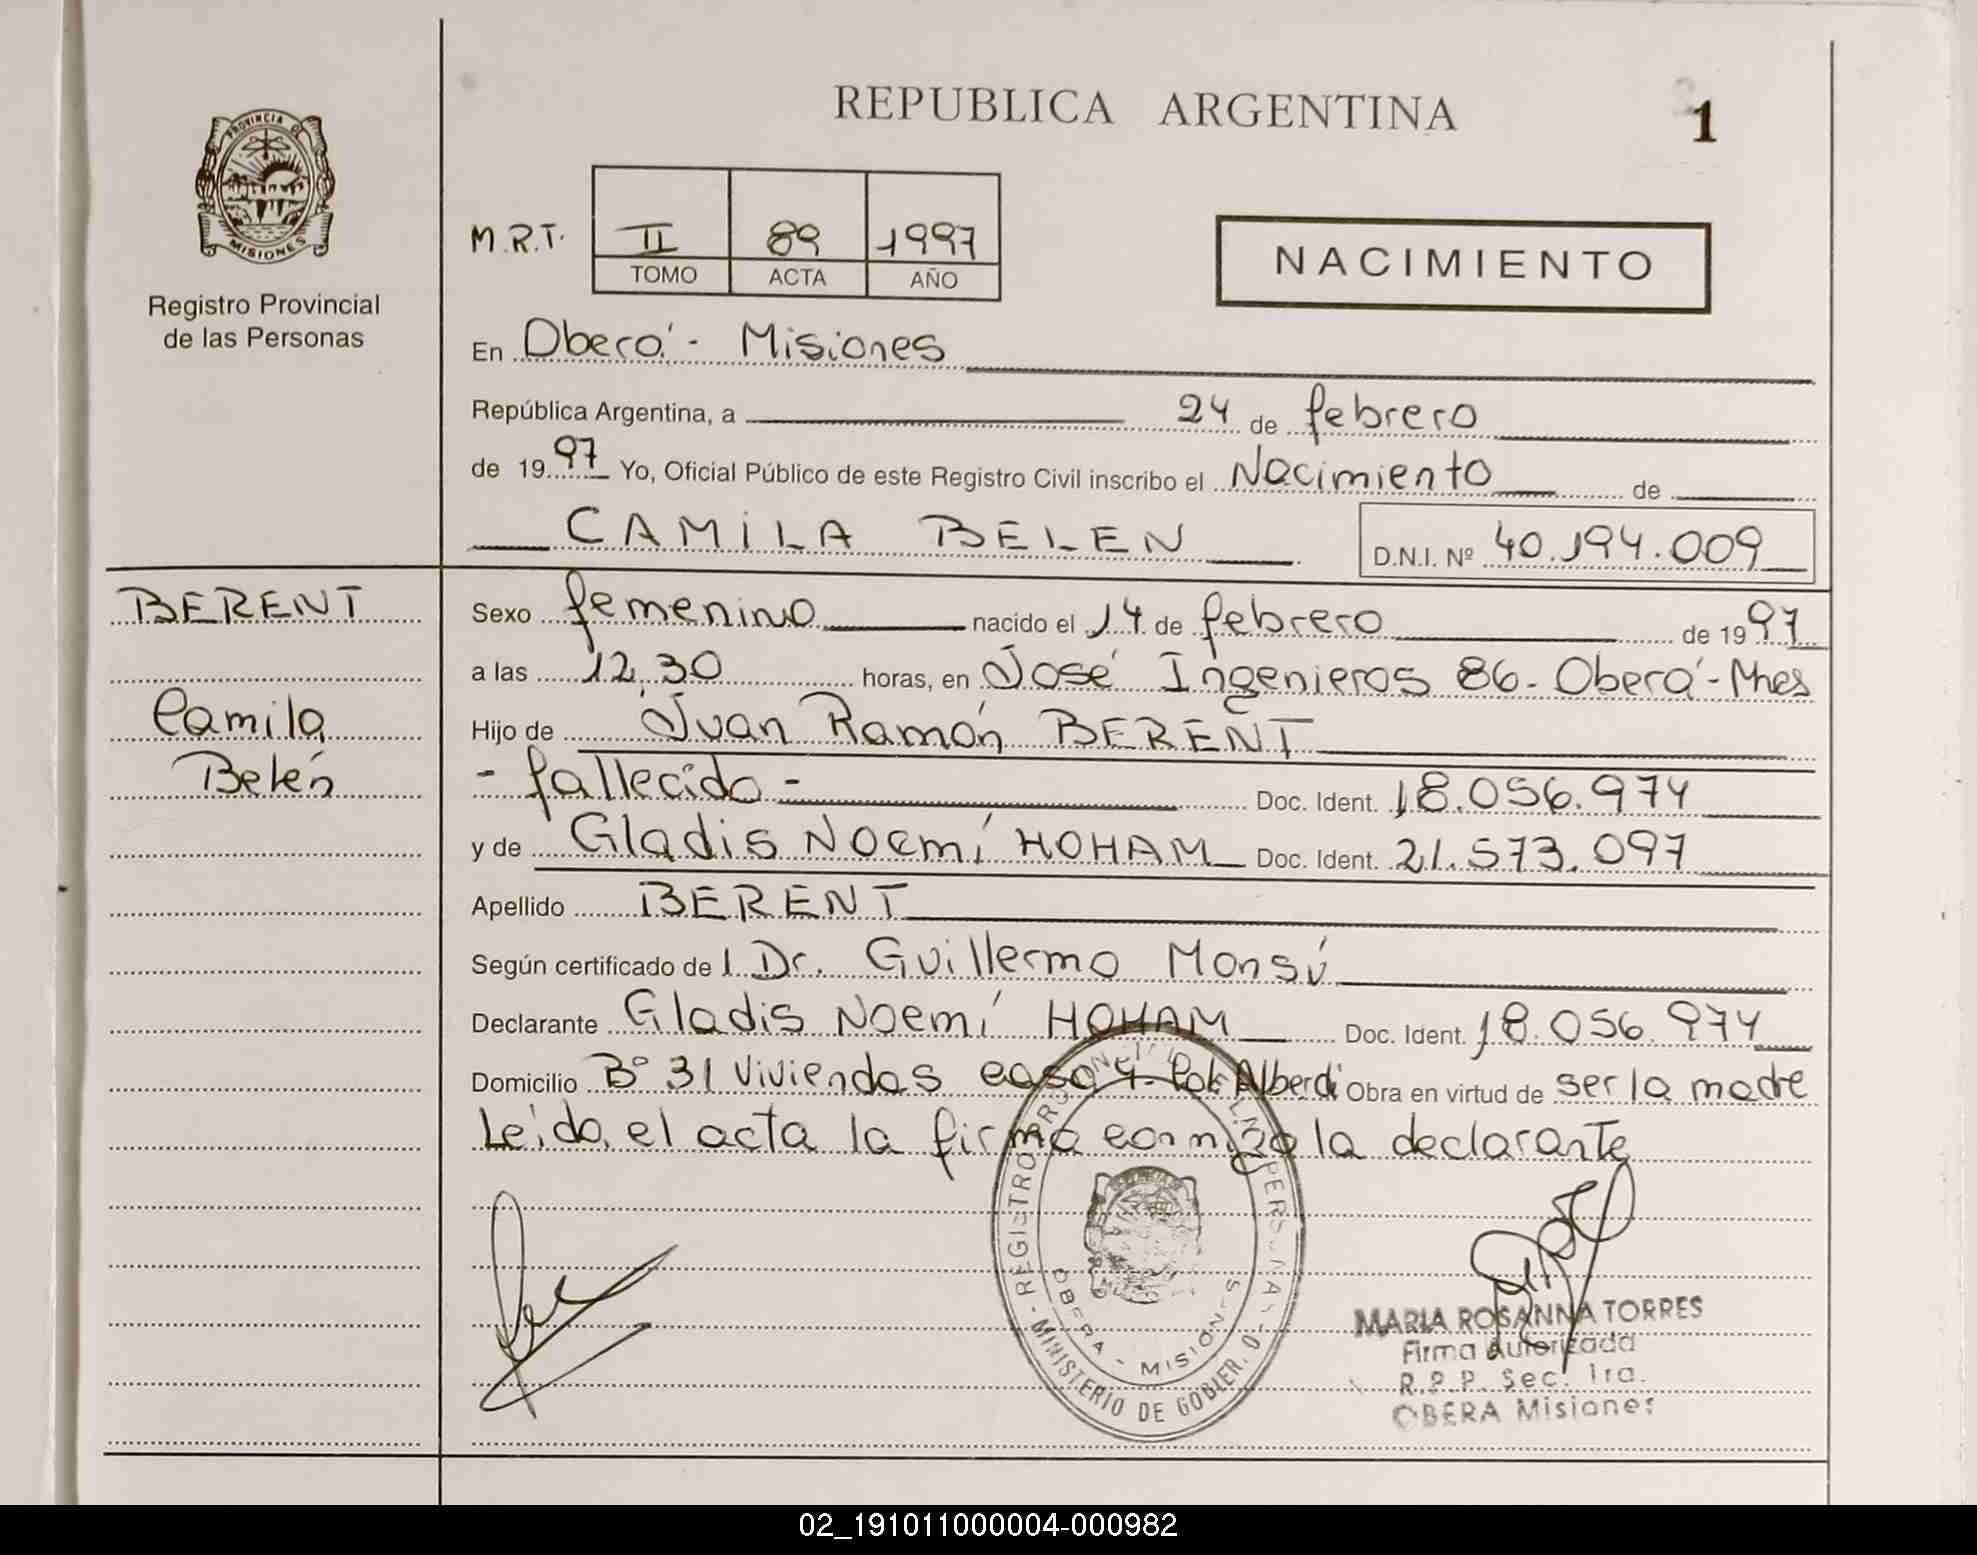 REPUBLICA ARGENTINA
1
PROVINCIA DE
MISIONES
Registro Provincial
de las Personas
M.R.T. II 89 1997
TOMO ACTA AÑO
NACIMIENTO
En Oberá - Misiones
República Argentina, a 24 de febrero
de 1997 Yo, Oficial Público de este Registro Civil inscribo el Nacimiento de
CAMILA BELEN D.N.I. Nº 40.194.009
BERENT
Camila
Belén
Sexo femenino nacido el 14 de febrero de 1997
a las 12,30 horas, en José Ingenieros 86 - Oberá - Mnes
Hijo de Juan Ramón BERENT
- fallecido - Doc. Ident. 18.056.974
y de Gladis Noemí HOHAM Doc. Ident. 21.573.097
Apellido BERENT
Según certificado de l Dr. Guillermo Monsú
Declarante Gladis Noemí HOHAM Doc. Ident. 18.056.974
Domicilio Bº 31 Viviendas casa 4 - Alberdi Obra en virtud de ser la madre
Leída el acta la firma conmigo la declarante
REGISTRO DE LAS PERSONAS
OBERA - MISIONES
MINISTERIO DE GOBIER. O
MARIA ROSANNA TORRES
Firma Autorizada
R.P.P. Sec. 1ra.
OBERA Misiones
02_191011000004-000982